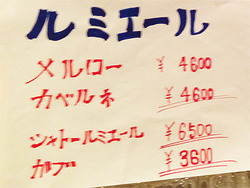 ルミエール
メルロー ¥4600
カベルネ ¥4600
シャトールミエール ¥6500
カブ ¥3600